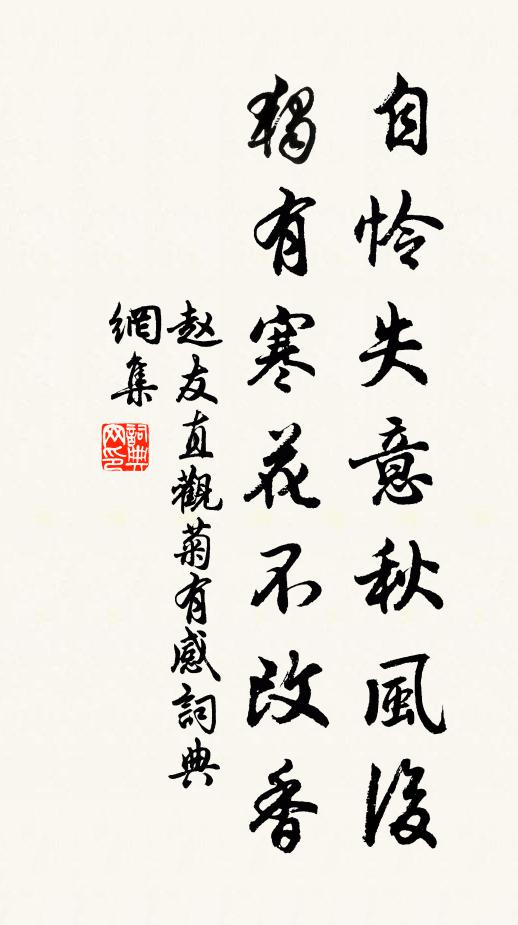 自怜失意秋風後
獨有寒花不改香
赵友直觀菊有感詞典
網集
詞典
网印